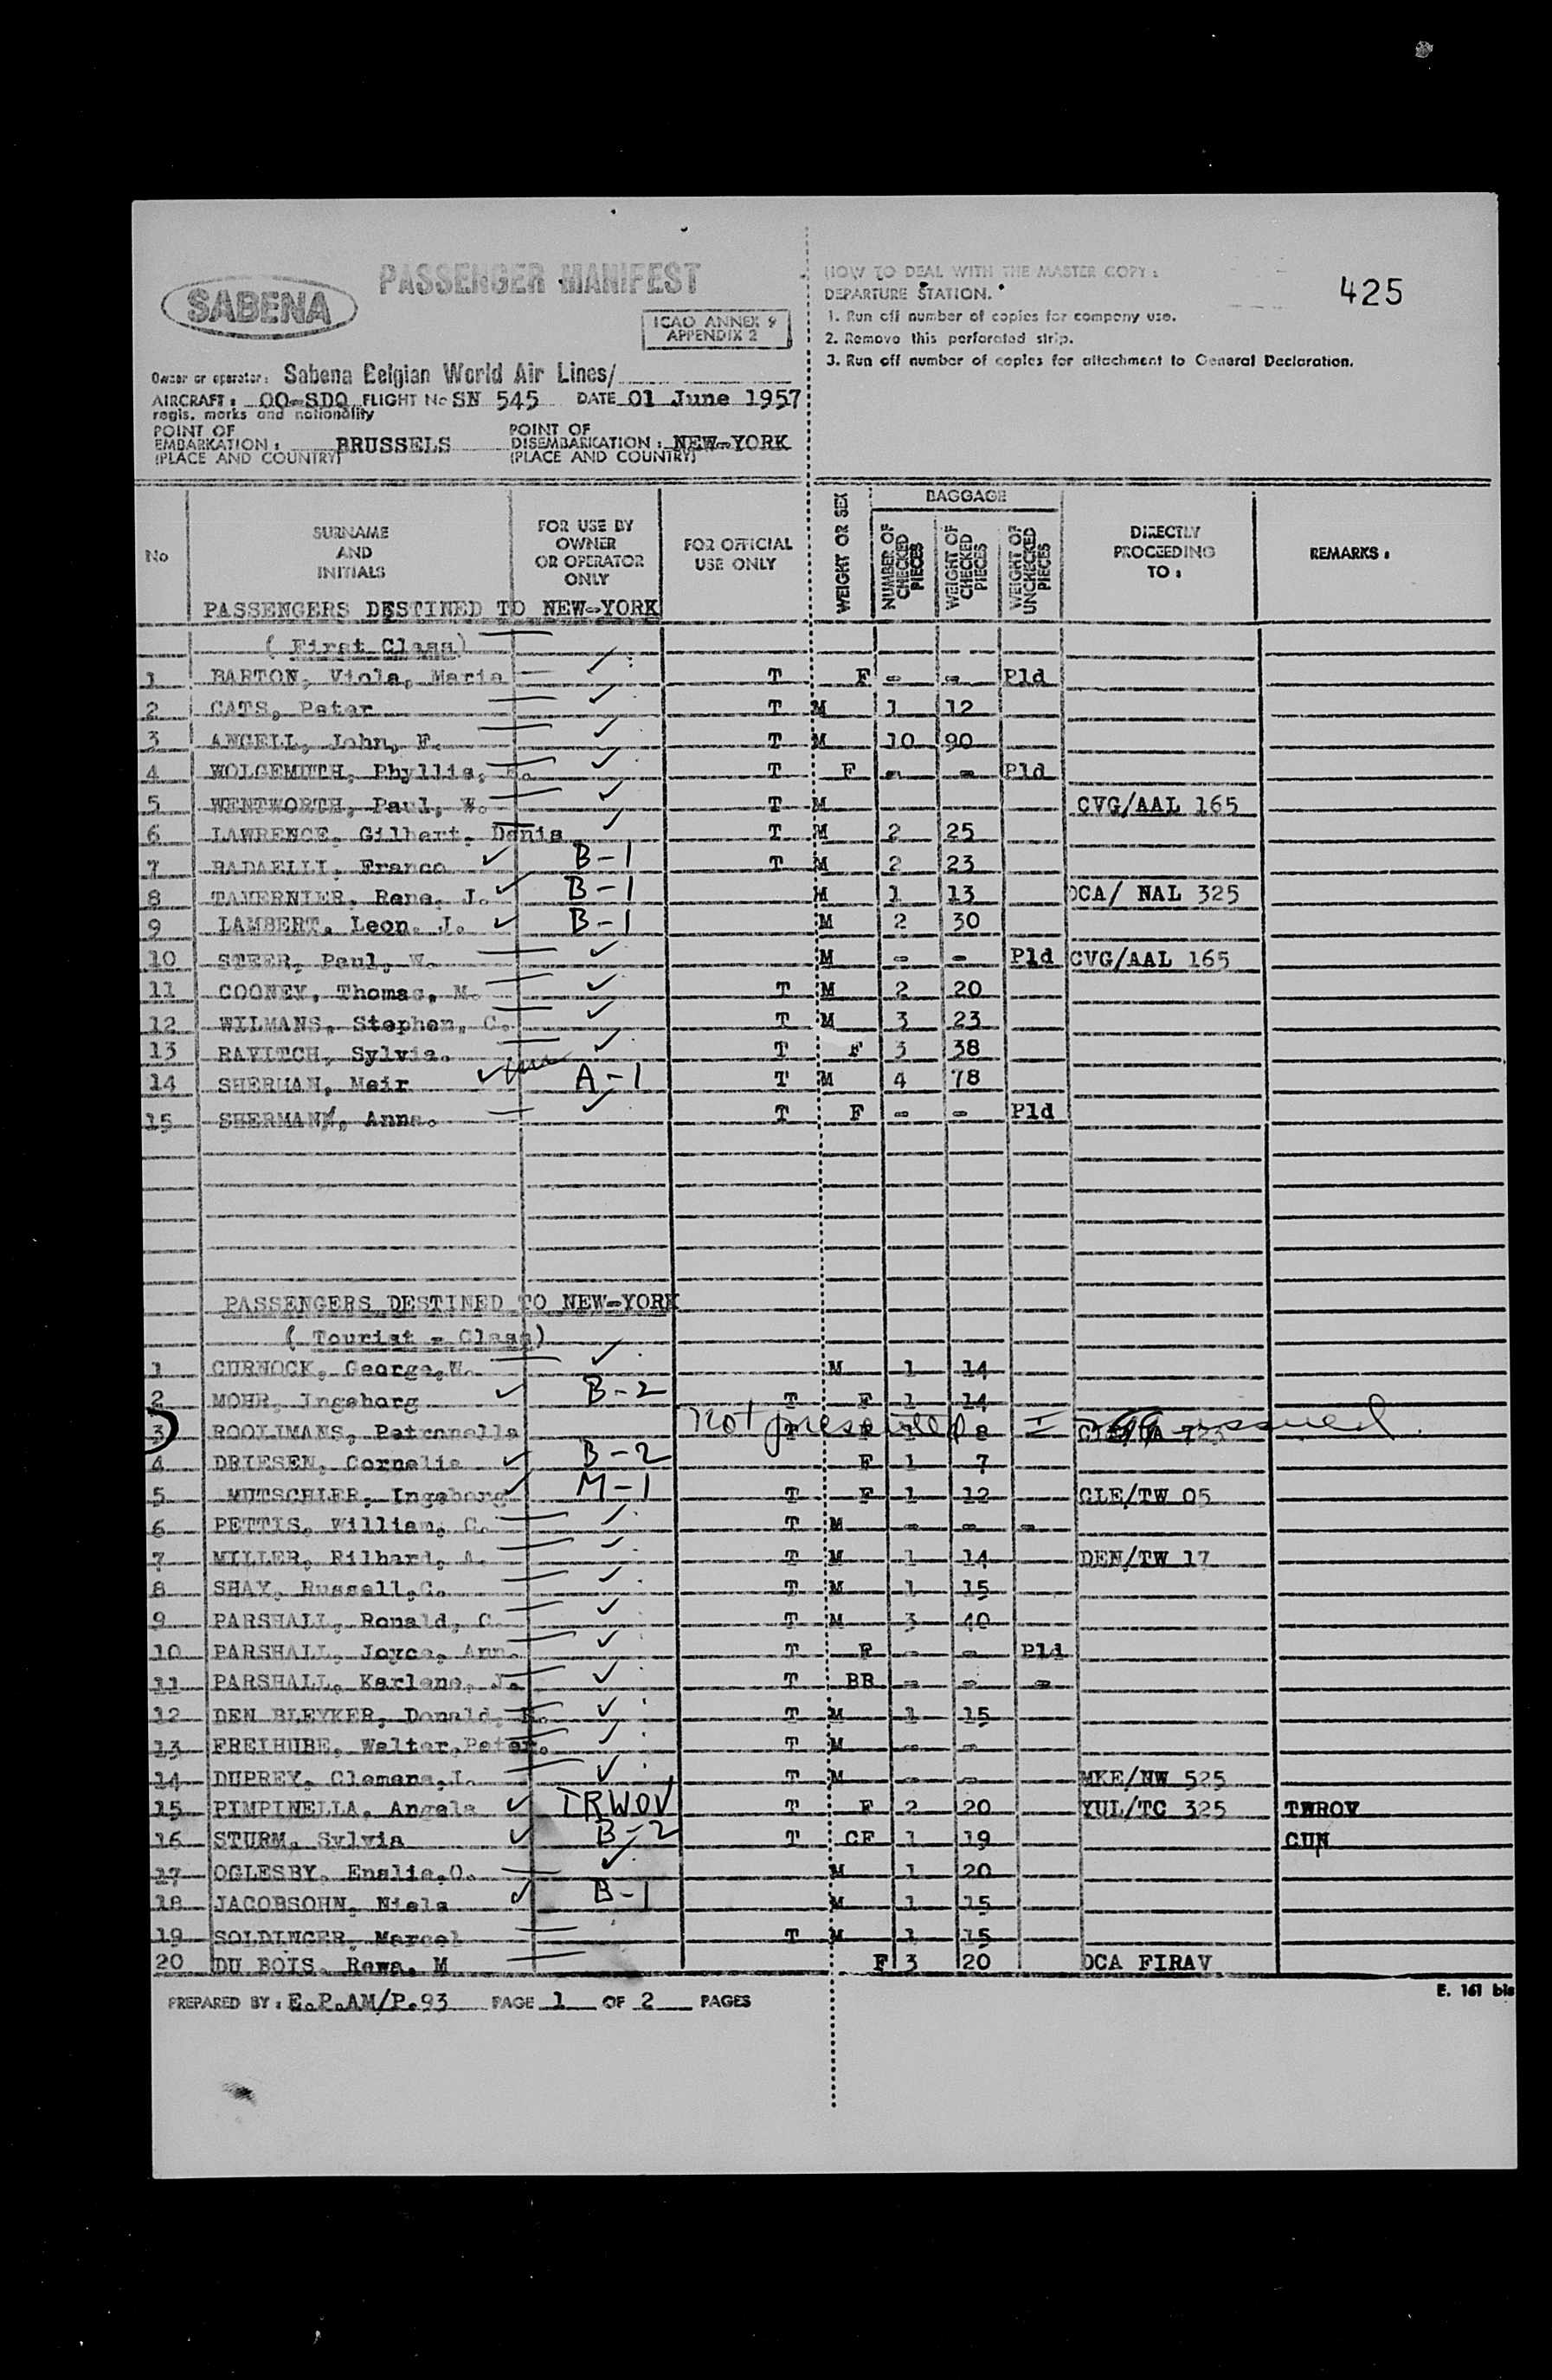 425
PASSENGER MANIFEST
SABENA
ICAO ANNEX 9
APPENDIX 2
HOW TO DEAL WITH THE MASTER COPY :
DEPARTURE STATION.
1. Run off number of copies for company use.
2. Remove this perforated strip.
3. Run off number of copies for attachment to General Declaration.
Owner or operator: Sabena Belgian World Air Lines/
AIRCRAFT: OO-SDQ FLIGHT No SN 545 DATE 01 June 1957
regis. marks and nationality
POINT OF EMBARKATION : BRUSSELS POINT OF DISEMBARKATION : NEW-YORK
(PLACE AND COUNTRY) (PLACE AND COUNTRY)
No SURNAME AND INITIALS FOR USE BY OWNER OR OPERATOR ONLY FOR OFFICIAL USE ONLY WEIGHT OR SEX BAGGAGE NUMBER OF CHECKED PIECES WEIGHT OF CHECKED PIECES WEIGHT OF UNCHECKED PIECES DIRECTLY PROCEEDING TO : REMARKS :
PASSENGERS DESTINED TO NEW-YORK
( First Class)
1 BARTON, Viola, Maria T F - - Pld
2 CATS, Peter T M 1 12
3 ANGELL, John, F. T M 10 90
4 WOLGEMUTH, Phyllis, T F - - Pld
5 WENTWORTH, Paul, W. T M CVG/AAL 165
6 LAWRENCE, Gilbert, Denis T M 2 25
7 RADAELLI, Franco B-1 T M 2 23
8 TAVERNIER, Rene, J. B-1 M 1 13 DCA/ NAL 325
9 LAMBERT, Leon, J. B-1 M 2 30
10 STEER, Paul, W. M - - Pld CVG/AAL 165
11 COONEY, Thomas, M. T M 2 20
12 WILMANS, Stephen, C. T M 3 23
13 RAVITCH, Sylvia. T F 3 38
14 SHERMAN, Meir A-1 T M 4 78
15 SHERMAN, Anna. T F - - Pld
PASSENGERS DESTINED TO NEW-YORK
( Tourist - Class)
1 CURNOCK, George,W. M 1 14
2 MOHR, Ingeborg B-2 T F 1 14
3 ROOLIMANS, Petronella Not presented I 8
4 DRIESEN, Cornelia B-2 F 1 7
5 MUTSCHLER, Ingeborg M-1 T F 1 12 CLE/TW 05
6 PETTIS, William, C. T M - - -
7 MILLER, Rilhard, A. T M 1 14 DEN/TW 17
8 SHAY, Russell,C. T M 1 15
9 PARSHALL, Ronald, C. T M 3 40
10 PARSHALL, Joyce, Ann. T F - - Pld
11 PARSHALL, Karlene, J. T BB - - -
12 DEN BLEYKER, Donald, T M 1 15
13 FREIHUBE, Walter,Peter. T M - -
14 DUPREY, Clemens,L. T M - - MKE/NW 525
15 PIMPINELLA, Angela TRWOV T F 2 20 YUL/TC 325 TWROV
16 STURM, Sylvia B-2 T CF 1 19 CUN
17 OGLESBY, Enslie,O. M 1 20
18 JACOBSOHN, Niels B-1 M 1 15
19 SOLDINGER, Marcel T M 1 15
20 DU BOIS, Rewa, M F 3 20 DCA FIRAV
PREPARED BY : E.P.AM/P.93 PAGE 1 OF 2 PAGES
E. 161 bis